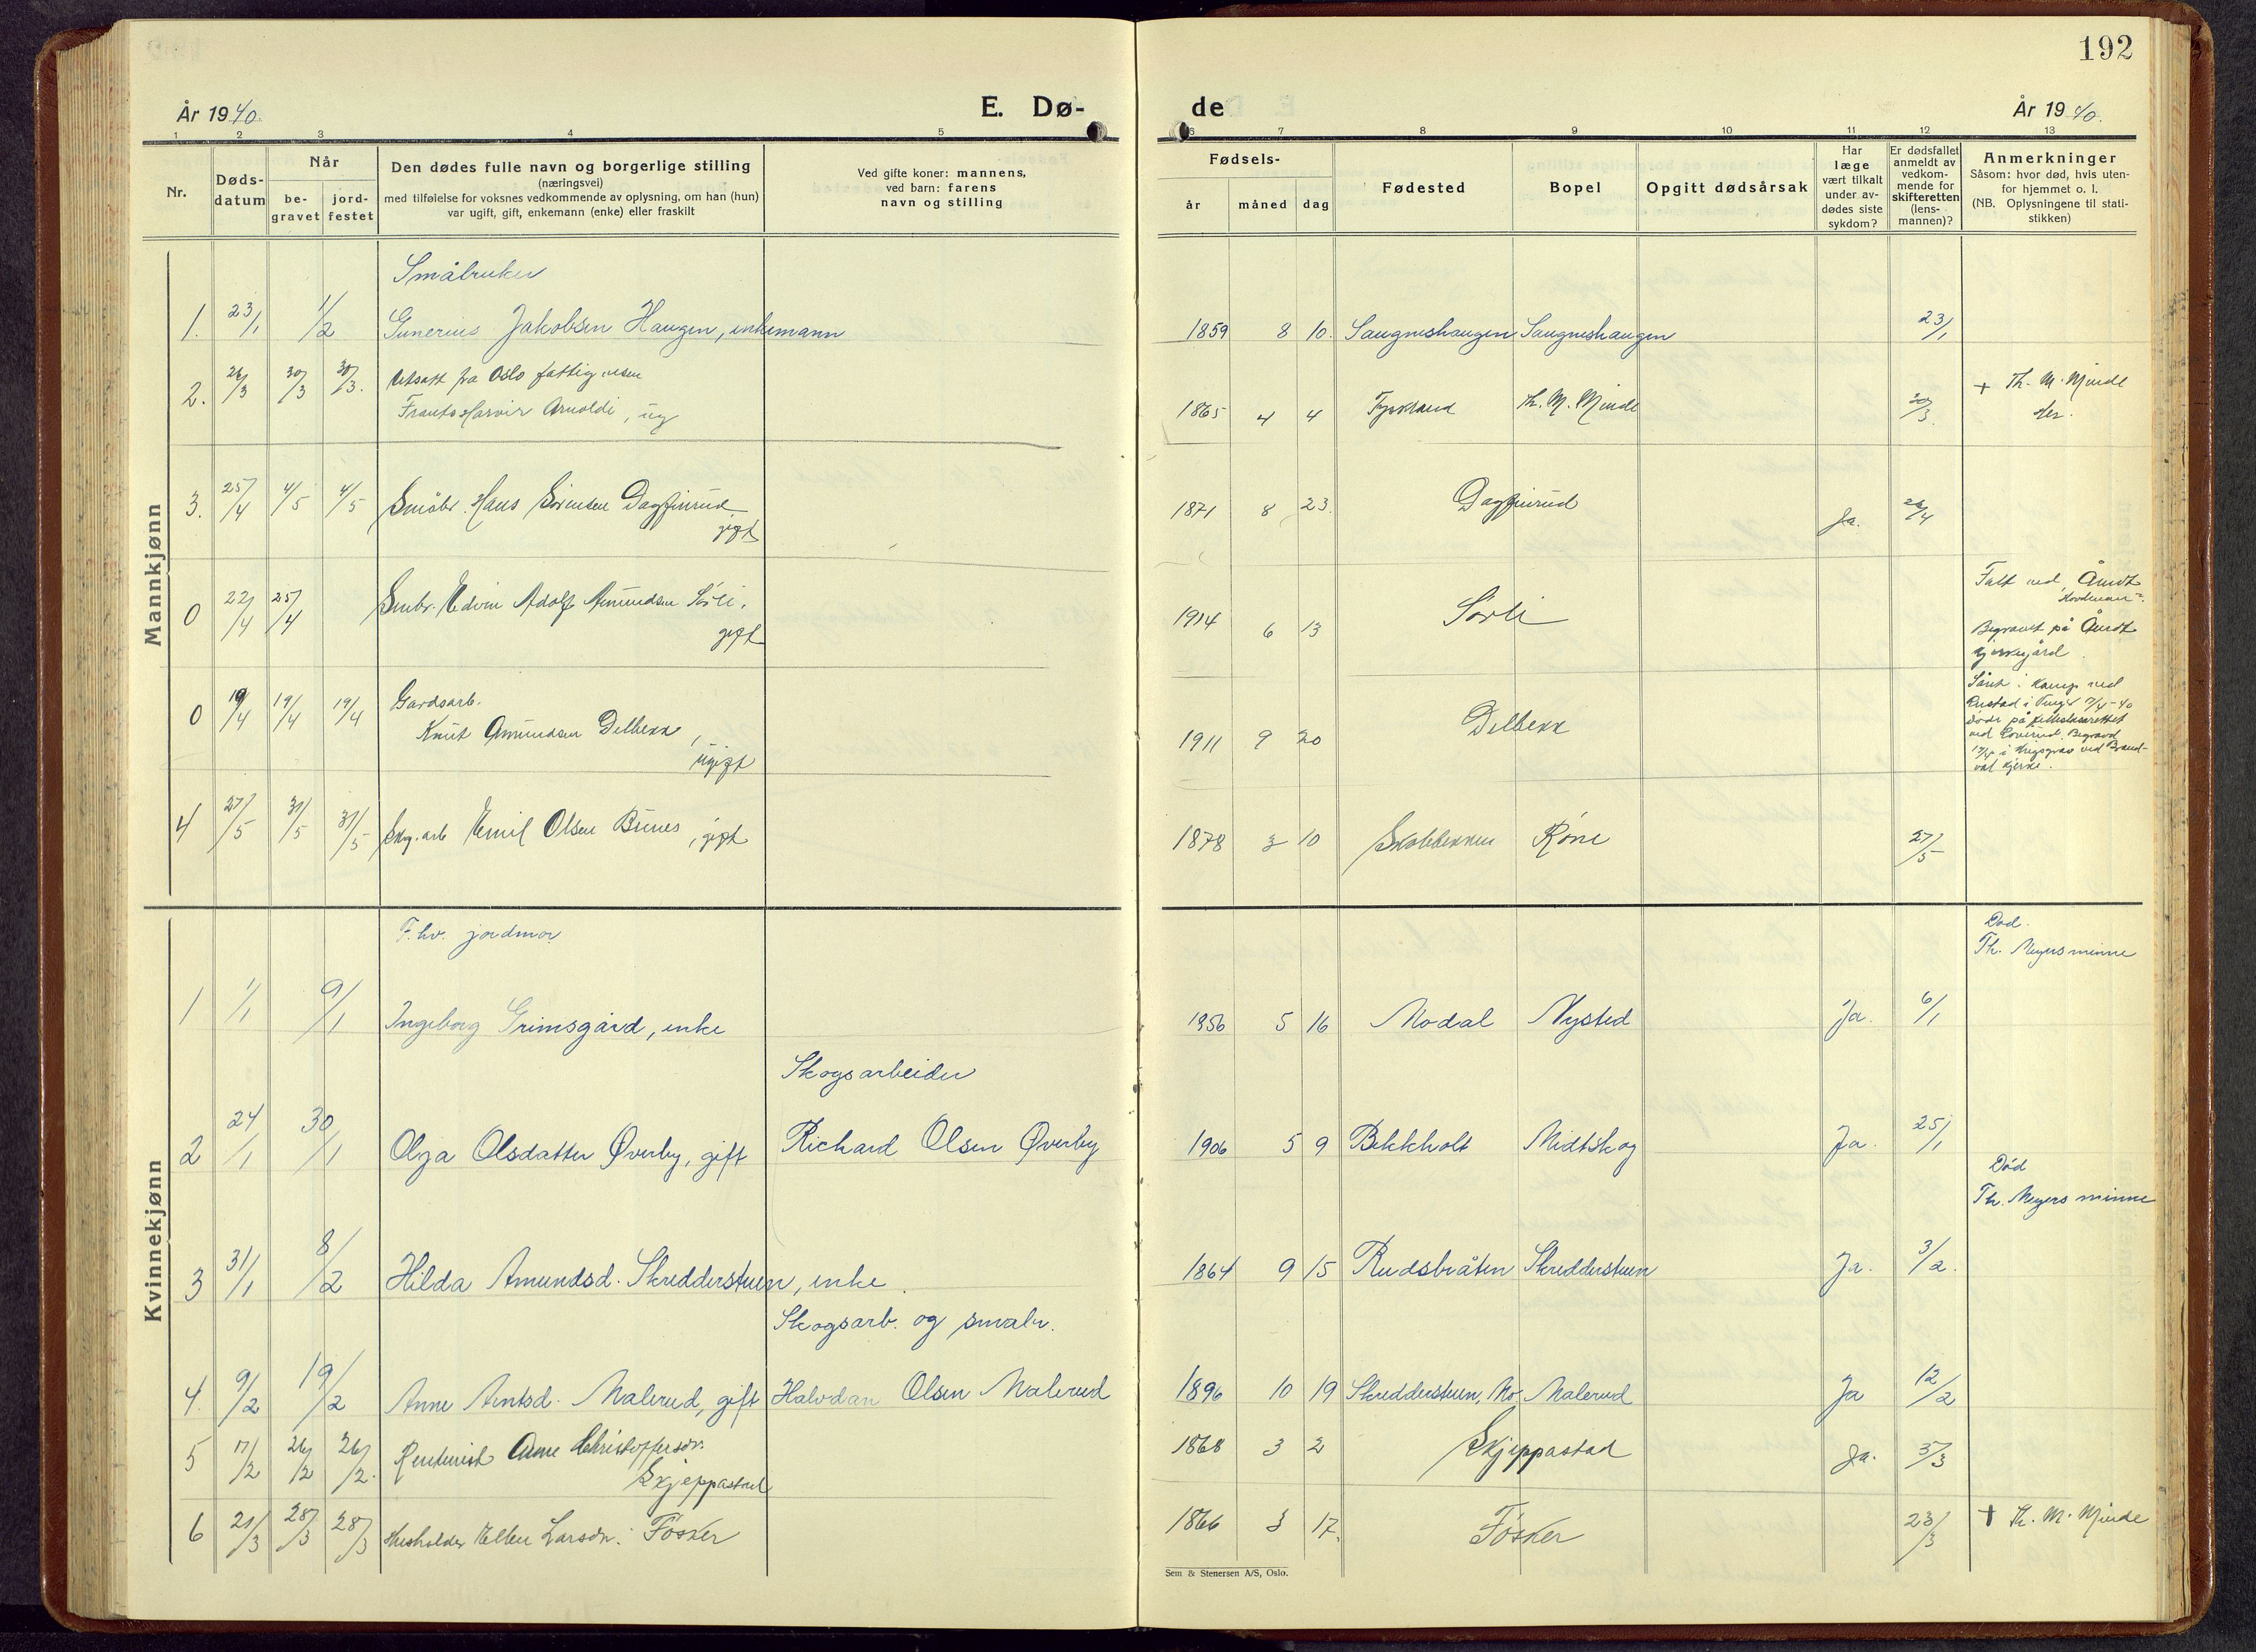 192
År 1940.
E. Dø-
de
År 1940.
1 2 3 4 5 6 7 8 9 10 11 12 13
Nr.
Døds-
datum
Når
be-
gravet
jord-
festet
Den dødes fulle navn og borgerlige stilling
(næringsvei)
med tilføielse for voksnes vedkommende av oplysning, om han (hun)
var ugift, gift, enkemann (enke) eller fraskilt
Ved gifte koner: mannens,
ved barn: farens
navn og stilling
Fødsels-
år måned dag
Fødested
Bopel
Opgitt dødsårsak
Har
læge
vært tilkalt
under av-
dødes siste
sykdom?
Er dødsfallet
anmeldt av
vedkom-
mende for
skifteretten
(lens-
mannen)?
Anmerkninger
Såsom: hvor død, hvis uten-
for hjemmet o. l.
(NB. Oplysningene til stati-
stikken)
Mannkjønn
Småbruker
1. 23/1 1/2 Gunerius Jakobsen Haugen, enkemann 1859 8 10. Saugneshaugen Saugneshaugen 23/1
2. 26/3 30/3 30/3. Utsatt fra Oslo fattigvesen
Frants Harvir Arnoldi, ug 1865 4 4 Tyskland Th. M. Minde
+ Th. M. Minde
her.
3. 25/4 4/5 4/5 Småbr. Hans Sørensen Dagfinrud
gift 1871 8 23. Dagfinrud Ja. 26/4
0 22/4 25/4 Smbr. Edvin Adolf Amundsen Sørli,
gift 1914 6 13 Sørli
Falt ved Åmot
Begravet på Åmot
kjirkegård
0 19/4 19/4 19/4 Gardsarb.
Knut Amundsen Delbekk,
ugift 1911 9 20 Delbekk
Såret i kamp ved
Rustad i
døde på feltlasarettet
ved Loverud. Begravd
19/4 i krigsgrav ved Brand-
val kjerke.
4 27/5 31/5 31/5 Skg.arb Emil Olsen Bunes, gift 1878 3 10 Skobbekken Røne 27/5
Kvinnekjønn
F. hv. jordmor
Død.
Th. Meyers minne
1 1/1 9/1 Ingeborg Grimsgård, enke 1856 5 16 Modal Nysted Ja. 6/1
Skogsarbeider
2 24/1 30/1 Olga Olsdatter Øverby, gift Richard Olsen Øverby 1906 5 9 Bekkholt Midtskog Ja. 25/1
Død
Th. Meyers minne
3 31/1 8/2 Hilda Amundsd. Skredderstuen, enke. 1864 9 15 Rudsbråten Skredderstuen Ja. 3/2.
Skogsarb. og småbr.
4. 9/2 19/2 Anne Arntsd. Malerud, gift Halvdan Olsen Malerud 1896 10 19 Skredderstuen, No. Malerud Ja 12/2
5 17/2 26/2 26/2. Rentenist Anne Christoffersdr.
Skjeppastad 1868 3 2 Skjeppastad Ja. 5/3
6 21/3 28/3 28/3 Husholder Ellen Larsdr. Fosker 1866 3 17. Fosker 23/3 + Th. M. Minde
Sem & Stenersen A/S, Oslo.